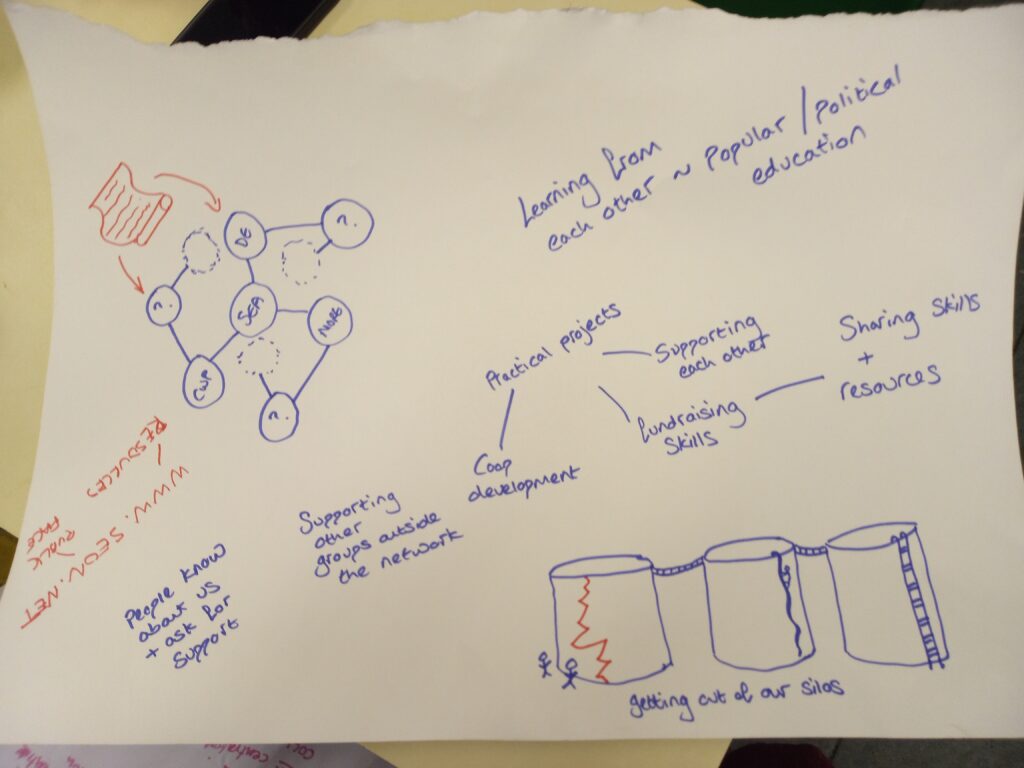 Learning from
each other ~ Popular / Political
education
DE
?.
?.
SEA
NOPE
CWP
?.
Practical projects
Supporting
each other
Fundraising
Skills
Sharing Skills
+
resources
Coop
development
Supporting
other
groups outside
the network
People know
about us
+ ask for
Support
RESOURCES
WWW.SEON.NET
PUBLIC
FACE
getting out of our silos